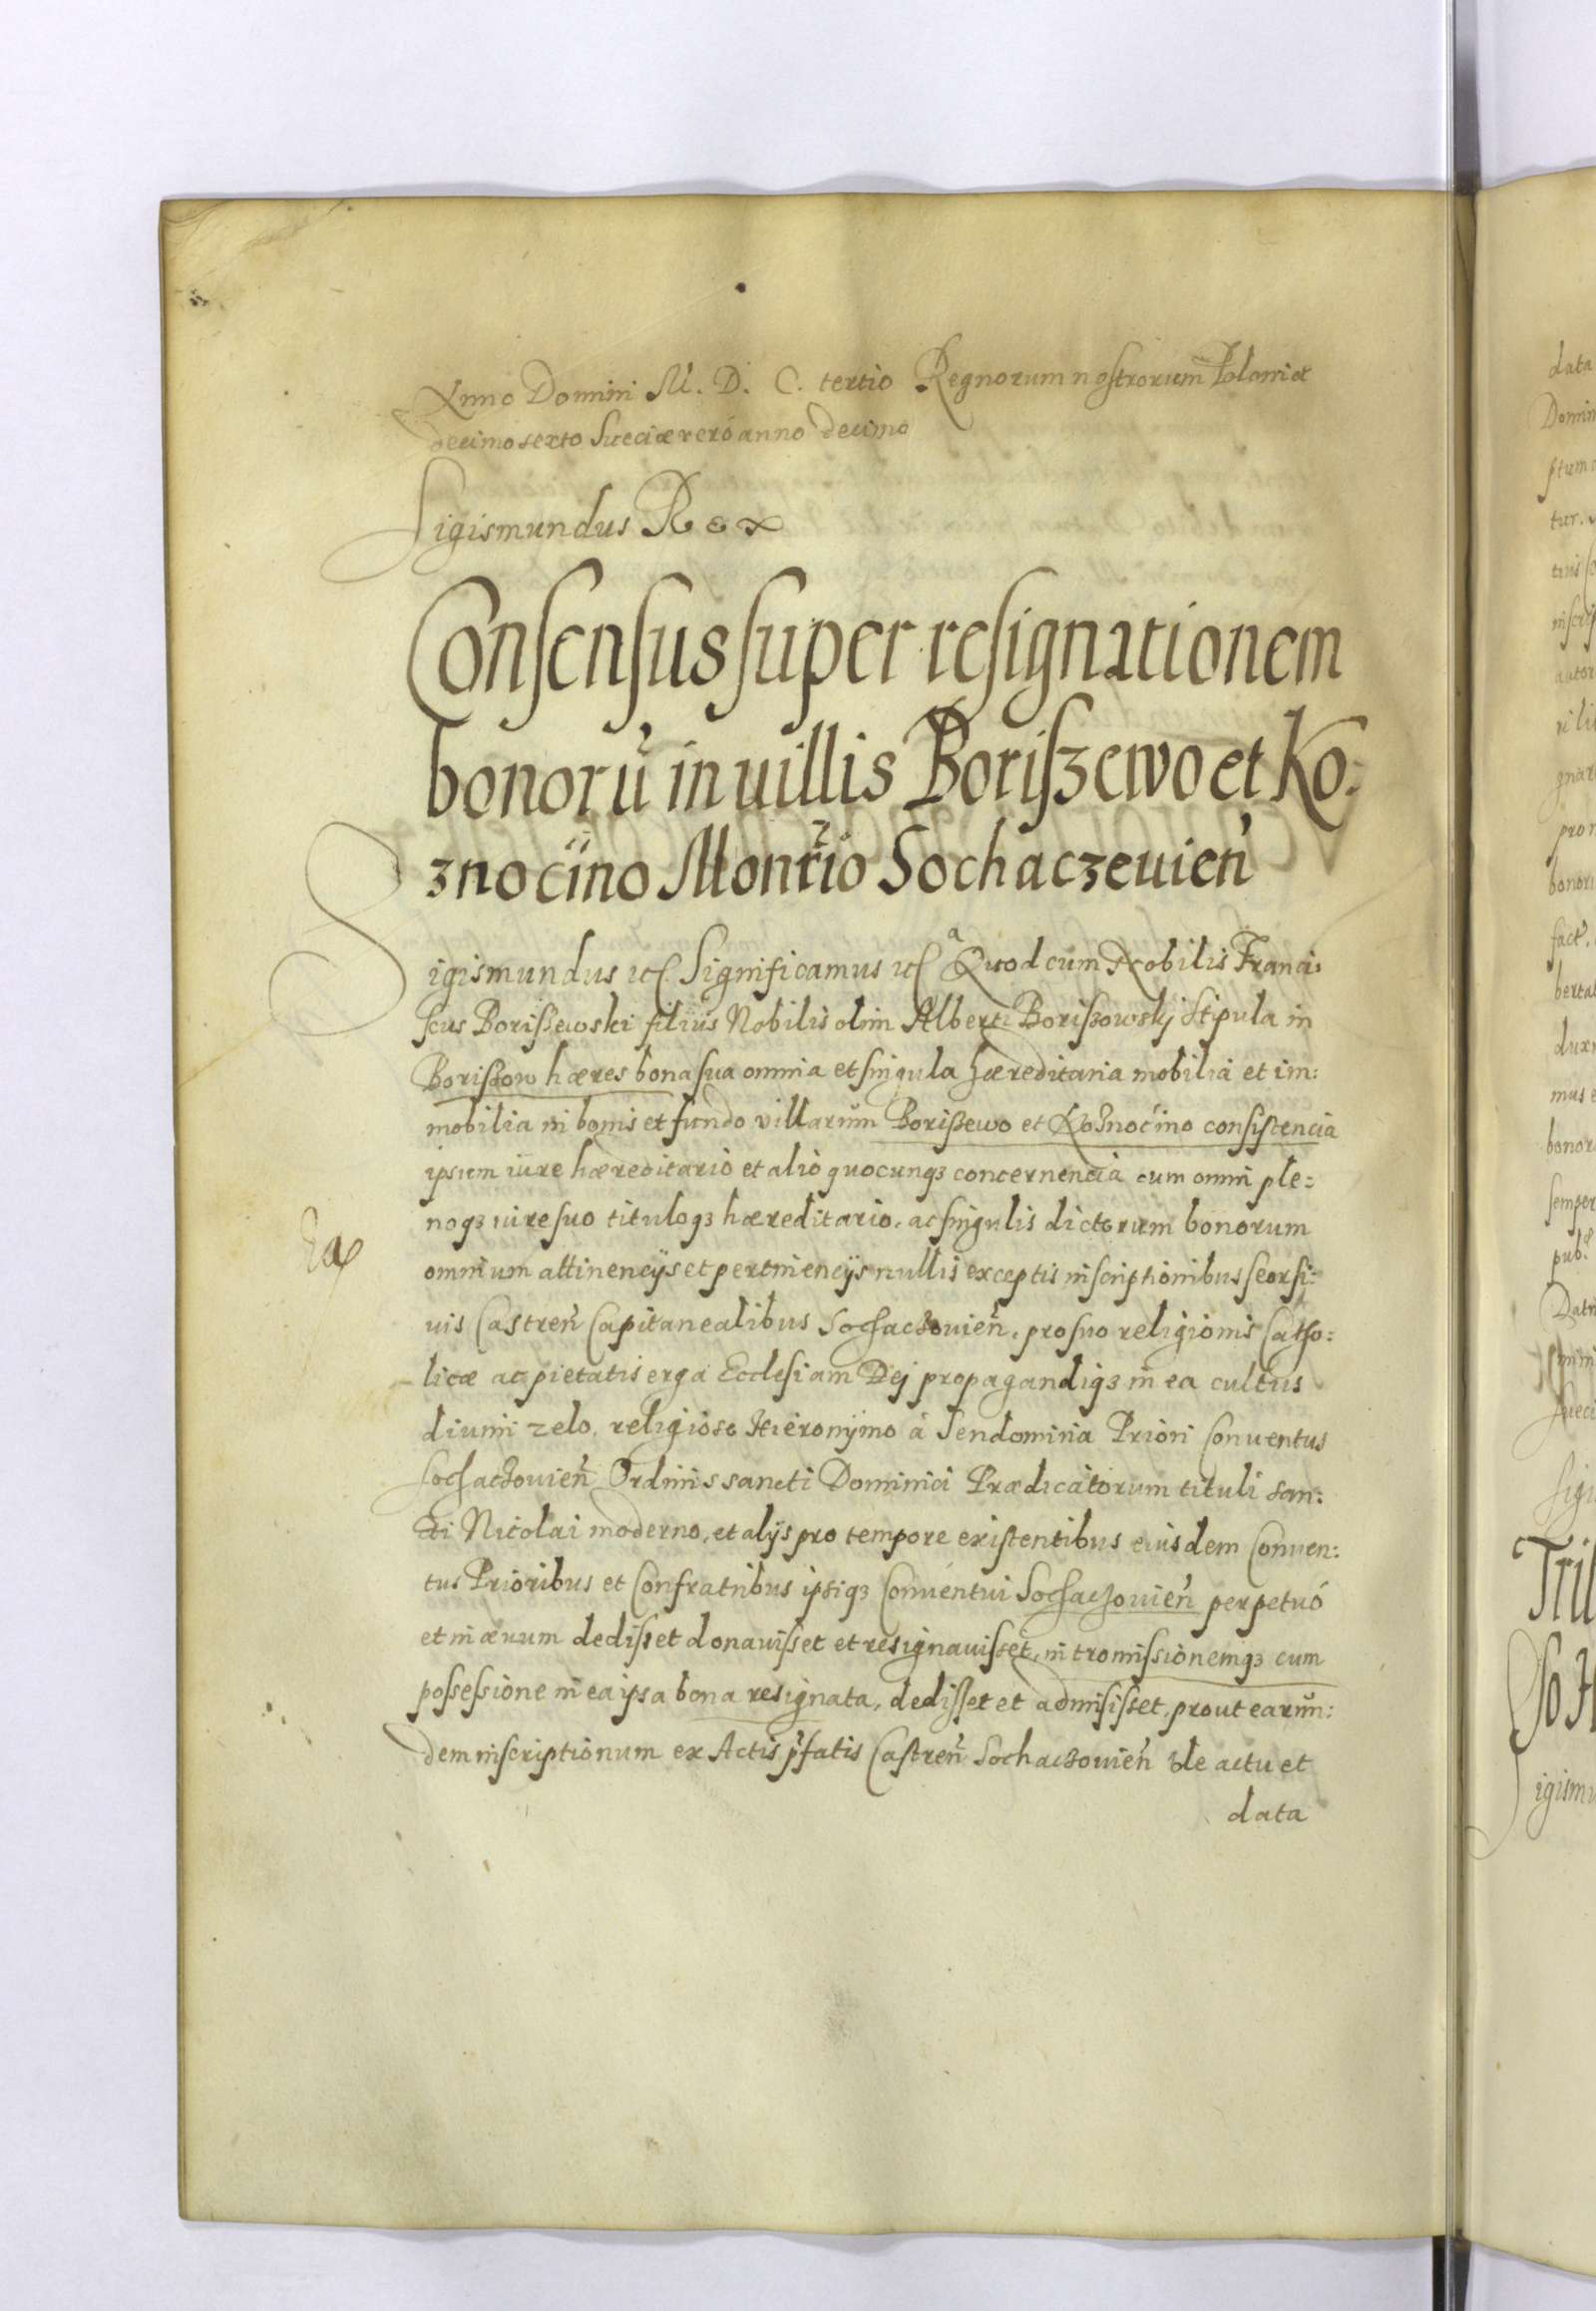 Anno Domini M. D. C. tertio Regnorum nostrorum Poloniæ
decimosexto Sueciæ veró anno decimo
Sigismundus Rex
Consensus super resignationem
bonorũ in uillis Boriszewo et Ko:
znocino Monrio Sochaczeuien̄
Sigismundus etc. Significamus etc. Quod cum Nobilis Franci:
scus Borissewski filius Nobilis olim Alberti Boriszowskj Stipula in
Boriszow hæres bona sua omnia et singula hæreditaria mobilia et im:
mobilia in bonis et fundo villarum Borissewo et Koznocino consistencia
ipsum iure hæreditario et alio quocunqȝ concernencia cum omni ple:
noqȝ iure suo tituloqȝ hæreditario, ac singulis dictorum bonorum
omnium attinencijs et pertinencijs nullis exceptis inscriptionibus seorsi:
uis Castren̄ Capitanealibus Sochaczouien̄, pro suo religionis Catho:
licæ ac pietatis erga Ecclesiam Dej propagandiqȝ in ea cultus
diuini zelo, religioso Hieronymo à Sendomiria Priori Conuentus
Sochaczouien̄ Ordinis sancti Dominici Prædicatorum tituli san:
cti Nicolai moderno, et alijs pro tempore existentibus eiusdem Conuen:
tus Prioribus et Confratribus ipsiqȝ Conuentui Sochaczouien̄ perpetuó
et in æuum dedisset donauisset et resignauisset, intromissionemqȝ cum
possessione in ea ipsa bona resignata, dedisset et admisisset, prout earun:
dem inscriptionum ex Actis p̄fatis Castren̄ Sochaczouien̄ de actu et
data
data
Domin